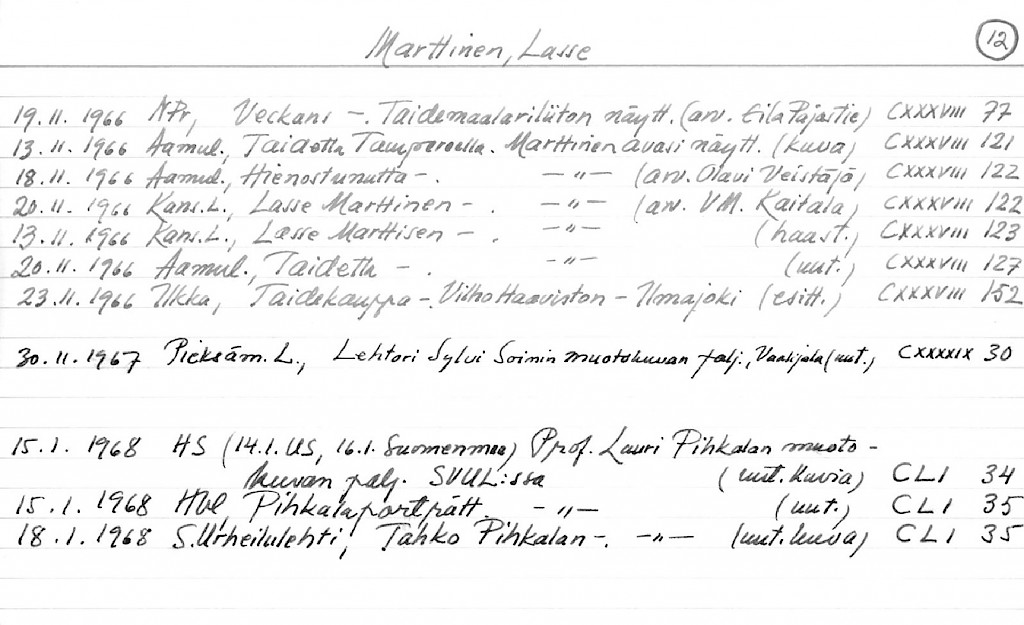 Marttinen, Lasse
12
19.11.1966 NPr, Veckans -. Taidemaalariliiton näytt. (arv. Eila Pajastie) CXXXVIII 77
13.11.1966 Aamul., Taidetta Tampereella. Marttinen avasi näytt. (kuva) CXXXVIII 121
18.11.1966 Aamul., Hienostunutta -. -"- (arv. Olavi Veistäjä) CXXXVIII 122
20.11.1966 Kans.L., Lasse Marttinen -. -"- (arv. VM. Kaitala) CXXXVIII 122
13.11.1966 Kans.L., Lasse Marttisen -. -"- (haast.) CXXXVIII 123
20.11.1966 Aamul., Taidetta -. -"- (uut.) CXXXVIII 127
23.11.1966 Ilkka, Taidekauppa -. Vilho Haaviston - Ilmajoki (esitt.) CXXXVIII 152
30.11.1967 Pieksäm.L., Lehtori Sylvi Soinin muotokuvan palj., Vaalijala (uut.) CXXXXIX 30
15.1.1968 HS (14.1. US, 16.1. Suomenmaa) Prof. Lauri Pihkalan muoto-
kuvan palj. SVUL:ssa (uut. kuvia) CLI 34
15.1.1968 Hbl, Pihkalaporträtt. -"- (uut.) CLI 35
18.1.1968 S.Urheilulehti, Tahko Pihkalan -. -"- (uut. kuva) CLI 35